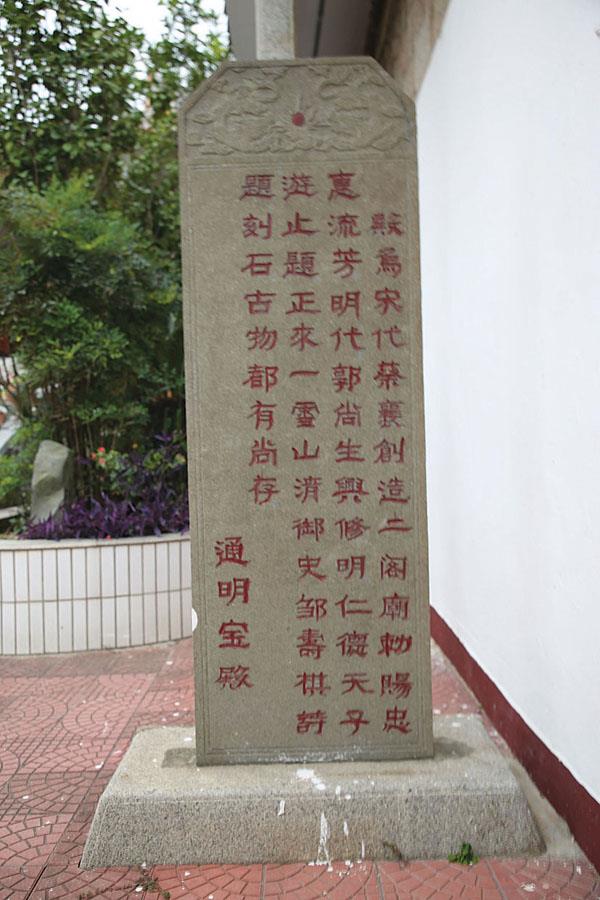 殿為宋代蔡襄創造二阁廟勅賜忠
惠流芳明代郭尚生興修明仁德天子
遊止題正來一霊山清御史邹壽祺詩
題刻石古物都有尚存
通明宝殿